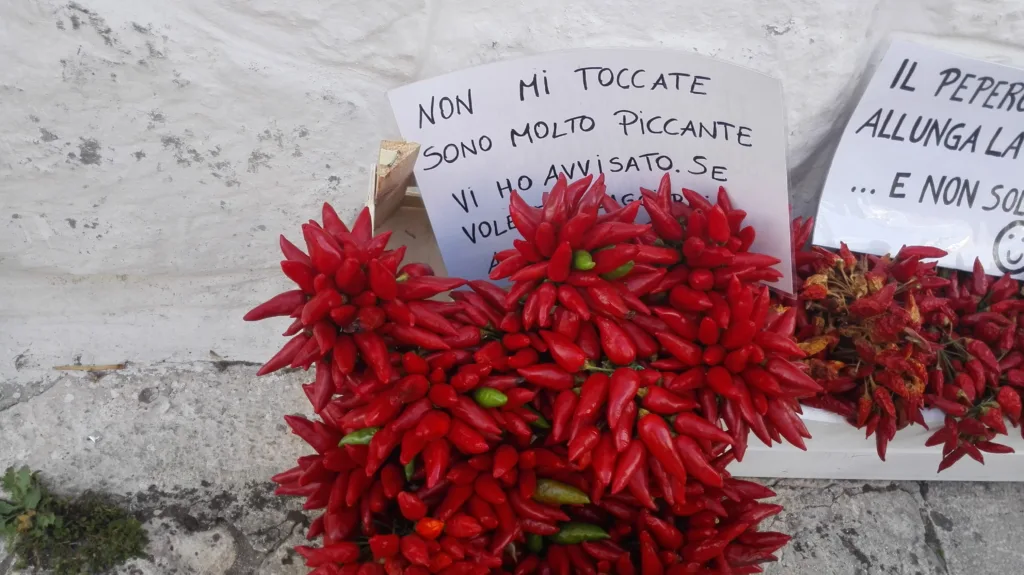 NON MI TOCCATE
SONO MOLTO PICCANTE
VI HO AVVISATO. SE
VOLE
A
IL PEPERO
ALLUNGA LA
... E NON SOL